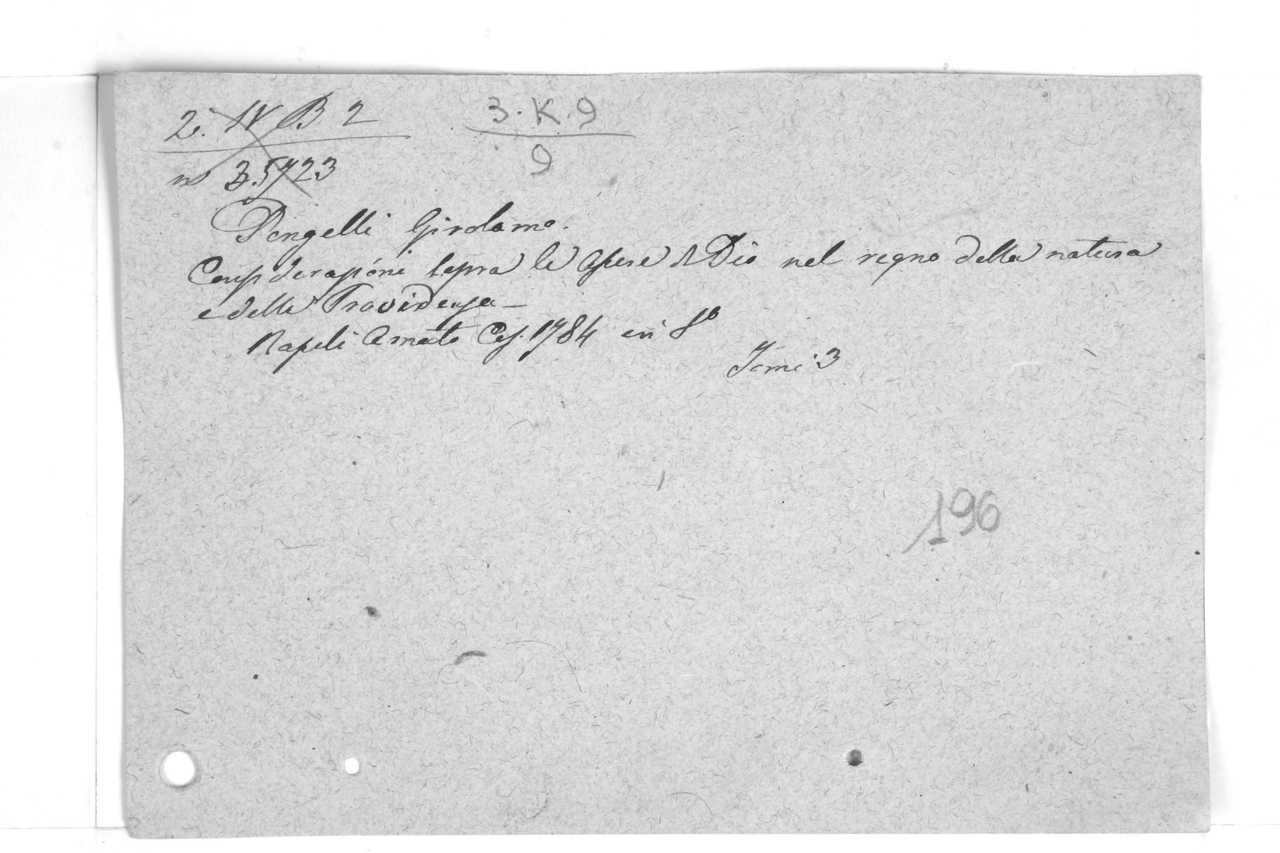 2. IV B 2
3.K.9
9
nº 3.5723
Pongelli Girolamo.
Considerazioni sopra le opere di Dio nel regno della natura
e della Providenza —
Napoli Amato Ces. 1784 in 8º
Tomi 3
196